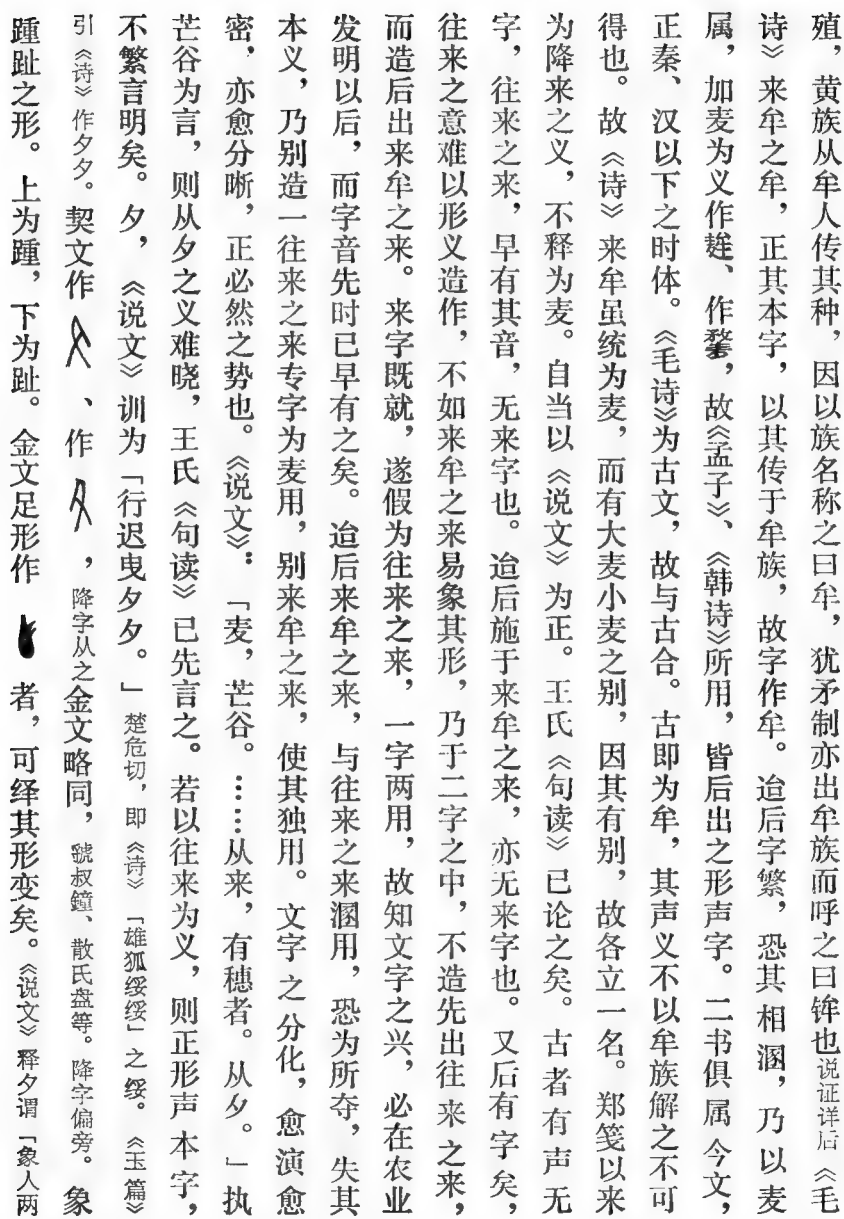 殖，黄族从牟人传其种，因以族名称之曰牟，犹矛制亦出牟族而呼之曰鉾也说证详后《毛
诗》来牟之牟，正其本字，以其传于牟族，故字作牟。迨后字繁，恐其相溷，乃以麦
属，加麦为义作䴻、作麰，故《孟子》、《韩诗》所用，皆后出之形声字。二书俱属今文，
正秦、汉以下之时体。《毛诗》为古文，故与古合。古即为牟，其声义不以牟族解之不可
得也。故《诗》来牟虽统为麦，而有大麦小麦之别，因其有别，故各立一名。郑笺以来
为降来之义，不释为麦。自当以《说文》为正。王氏《句读》已论之矣。古者有声无
字，往来之来，早有其音，无来字也。迨后施于来牟之来，亦无来字也。又后有字矣，
往来之意难以形义造作，不如来牟之来易象其形，乃于二字之中，不造先出往来之来，
而造后出来牟之来。来字既就，遂假为往来之来，一字两用，故知文字之兴，必在农业
发明以后，而字音先时已早有之矣。迨后来牟之来，与往来之来溷用，恐为所夺，失其
本义，乃别造一往来之来专字为麦用，别来牟之来，使其独用。文字之分化，愈演愈
密，亦愈分晰，正必然之势也。《说文》：「麦，芒谷。……从来，有穗者。从夂。」执
芒谷为言，则从夂之义难晓，王氏《句读》已先言之。若以往来为义，则正形声本字，
不繁言明矣。夂，《说文》训为「行迟曳夂夂。」楚危切，即《诗》「雄狐绥绥」之绥。《玉篇》
引《诗》作夂夂。契文作、作，降字从之金文略同，虢叔鐘、散氏盘等。降字偏旁。象
踵趾之形。上为踵，下为趾。金文足形作者，可绎其形变矣。《说文》释夂谓「象人两